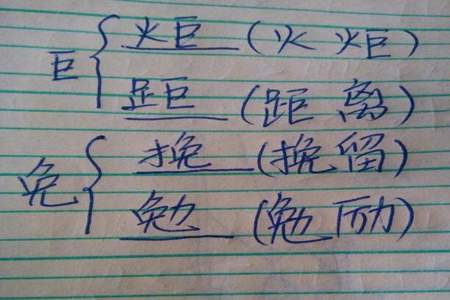 巨 { 炬 (火炬)
距 (距离)
免 { 挽 (挽留)
勉 (勉励)